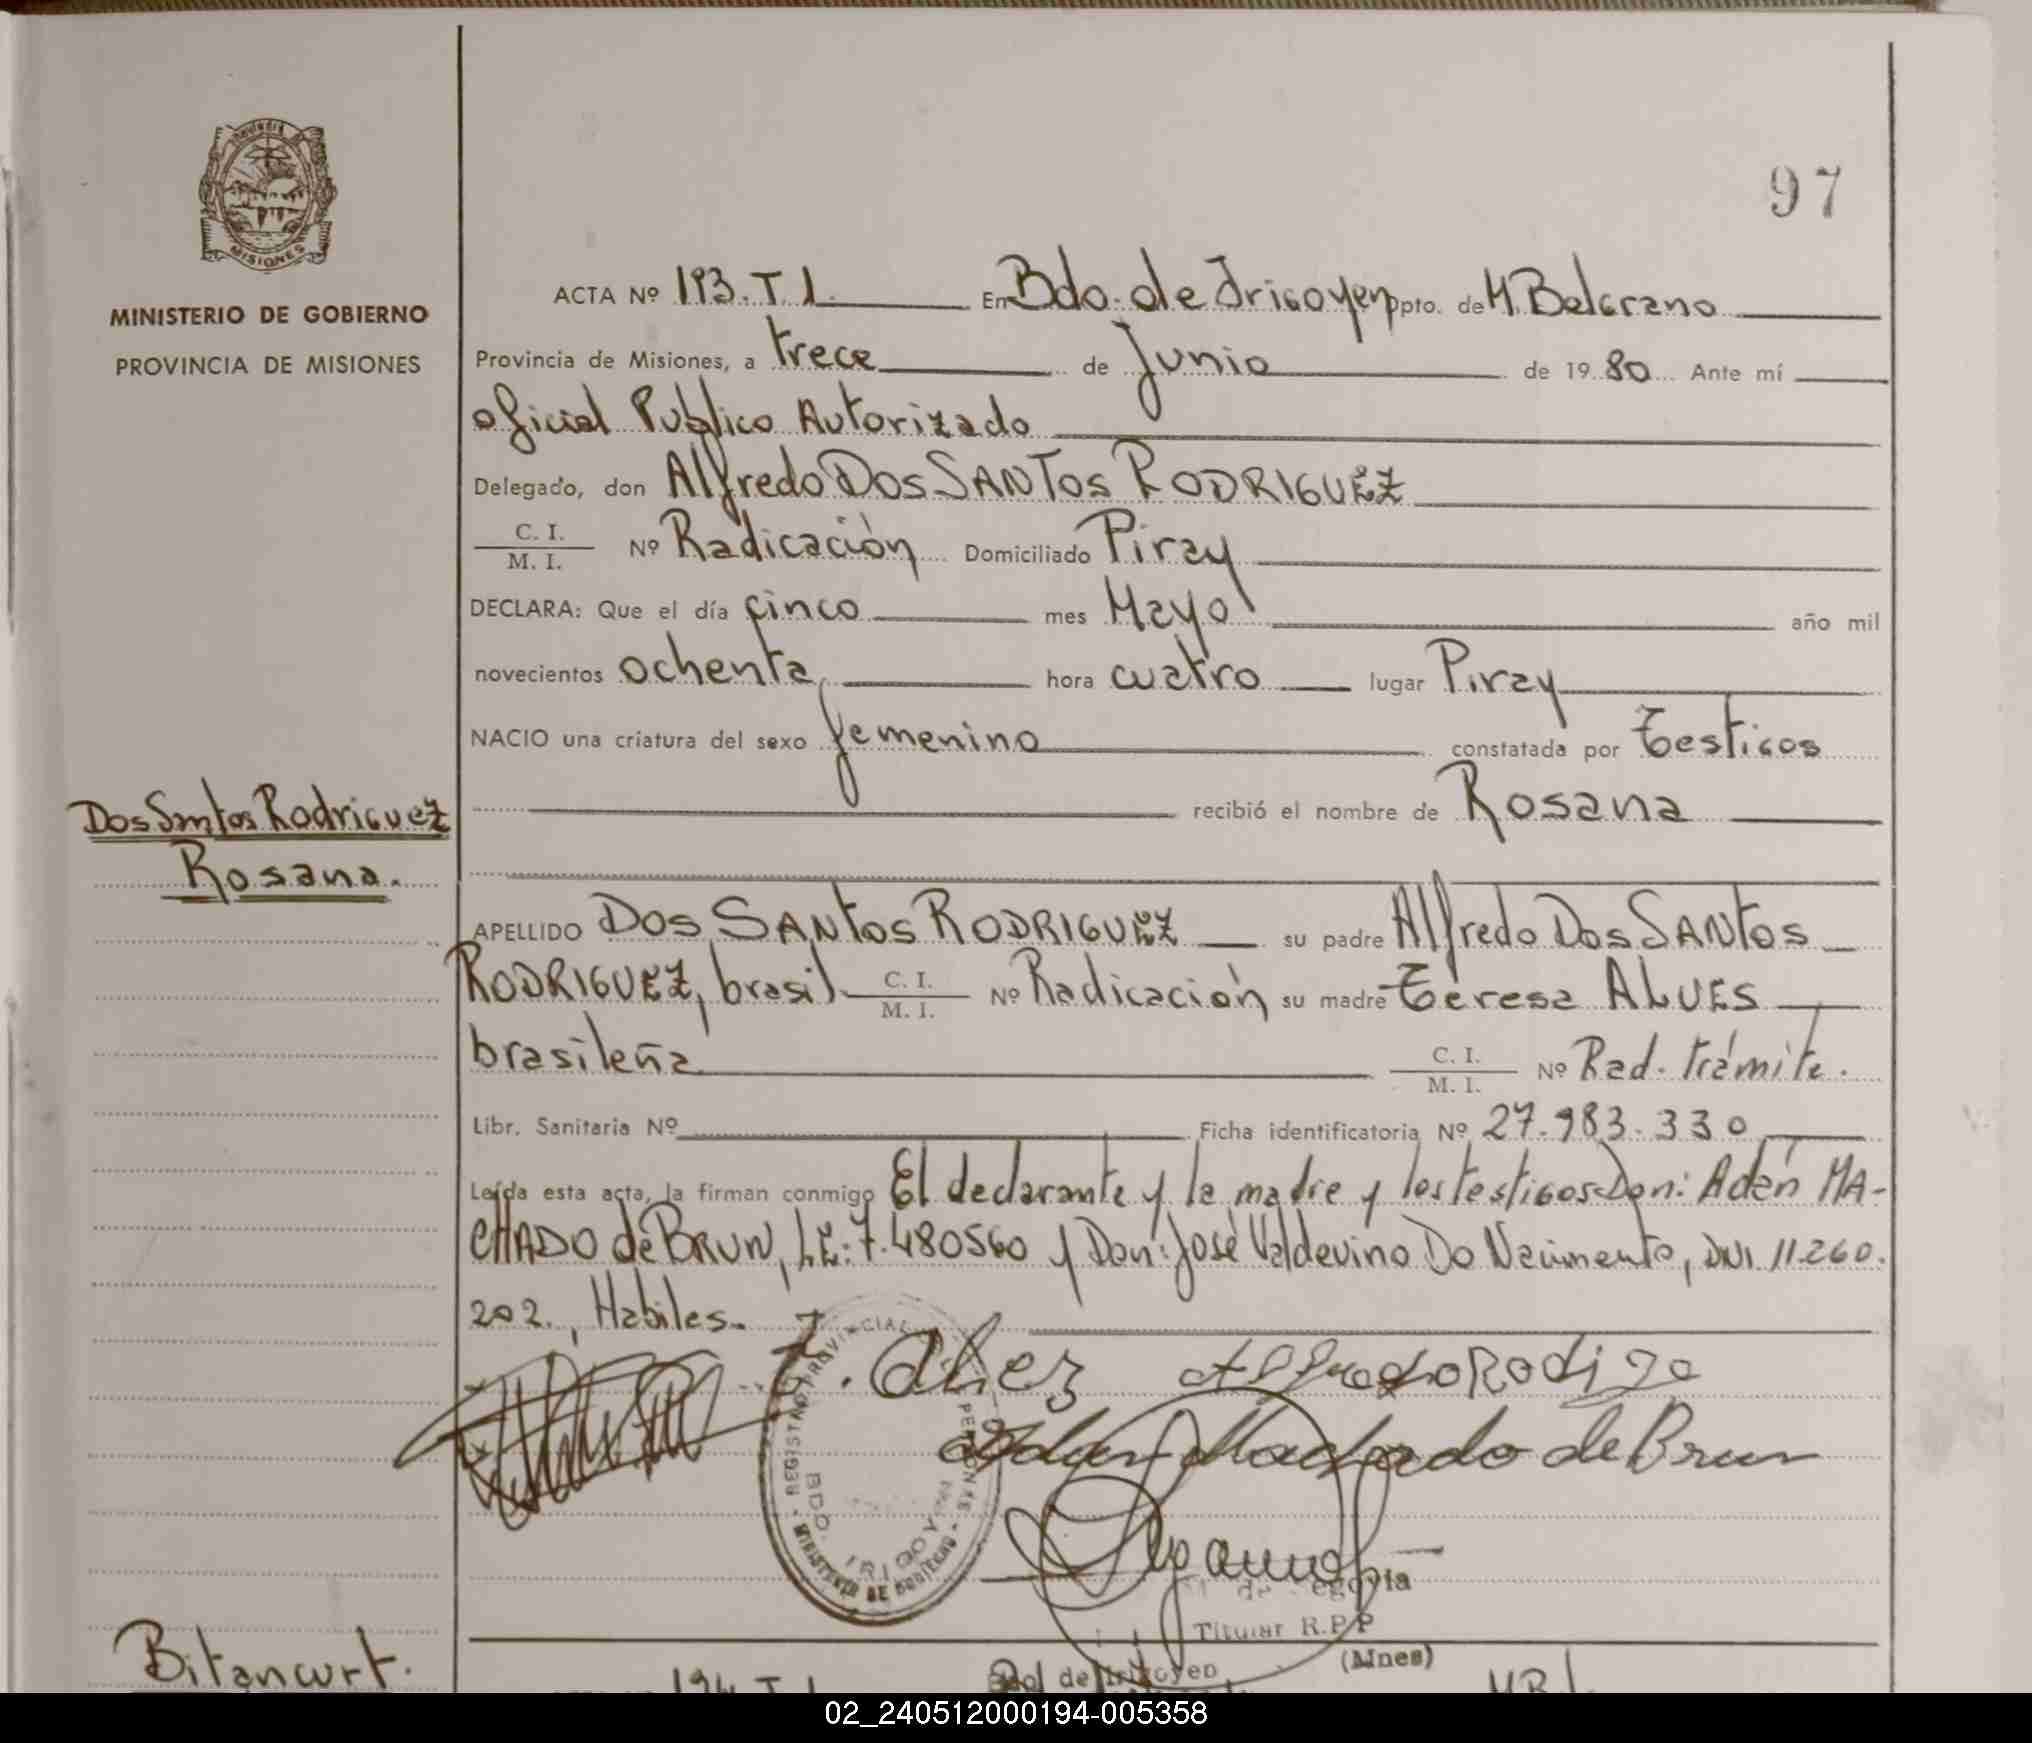 97
MISIONES
MINISTERIO DE GOBIERNO
PROVINCIA DE MISIONES
ACTA Nº 193. T. 1. En Bdo. de Irigoyen Dpto. de M. Belgrano
Provincia de Misiones, a trece de Junio de 19 80 Ante mí
oficial Publico Autorizado
Delegado, don Alfredo Dos SANTos RODRIGUEZ
C. I.
M. I. Nº Radicación Domiciliado Piray
DECLARA: Que el día cinco mes Mayo año mil
novecientos ochenta, hora cuatro lugar Piray
NACIO una criatura del sexo femenino constatada por Testigos
recibió el nombre de Rosana
Dos Santos Rodriguez
Rosana.
APELLIDO Dos SANTos RODRIGUEZ su padre Alfredo Dos SANTos
RODRIGUEZ, brasil. C. I. M. I. Nº Radicación su madre Teresa ALVES
brasileña C. I. M. I. Nº Rad. trámite.
Libr. Sanitaria Nº Ficha identificatoria Nº 27.983.330
Leída esta acta, la firman conmigo El declarante y la madre y los testigos Don: Adán MA-
CHADO de BRUN, L.E: 7.480560 y Don: José Valdevino Do Nacimento, DNI 11.260.
202., Habiles.
T. Alves Alfredo Rodigo
Adan Machado de Brun
REGISTRO PROVINCIAL PERSONAS
BDO. IRIGOYEN
MINISTERIO DE GOBIERNO
Titular R.P.P
(Mnes)
Bitancurt.
194. T. 1
de Irigoyen
02_240512000194-005358